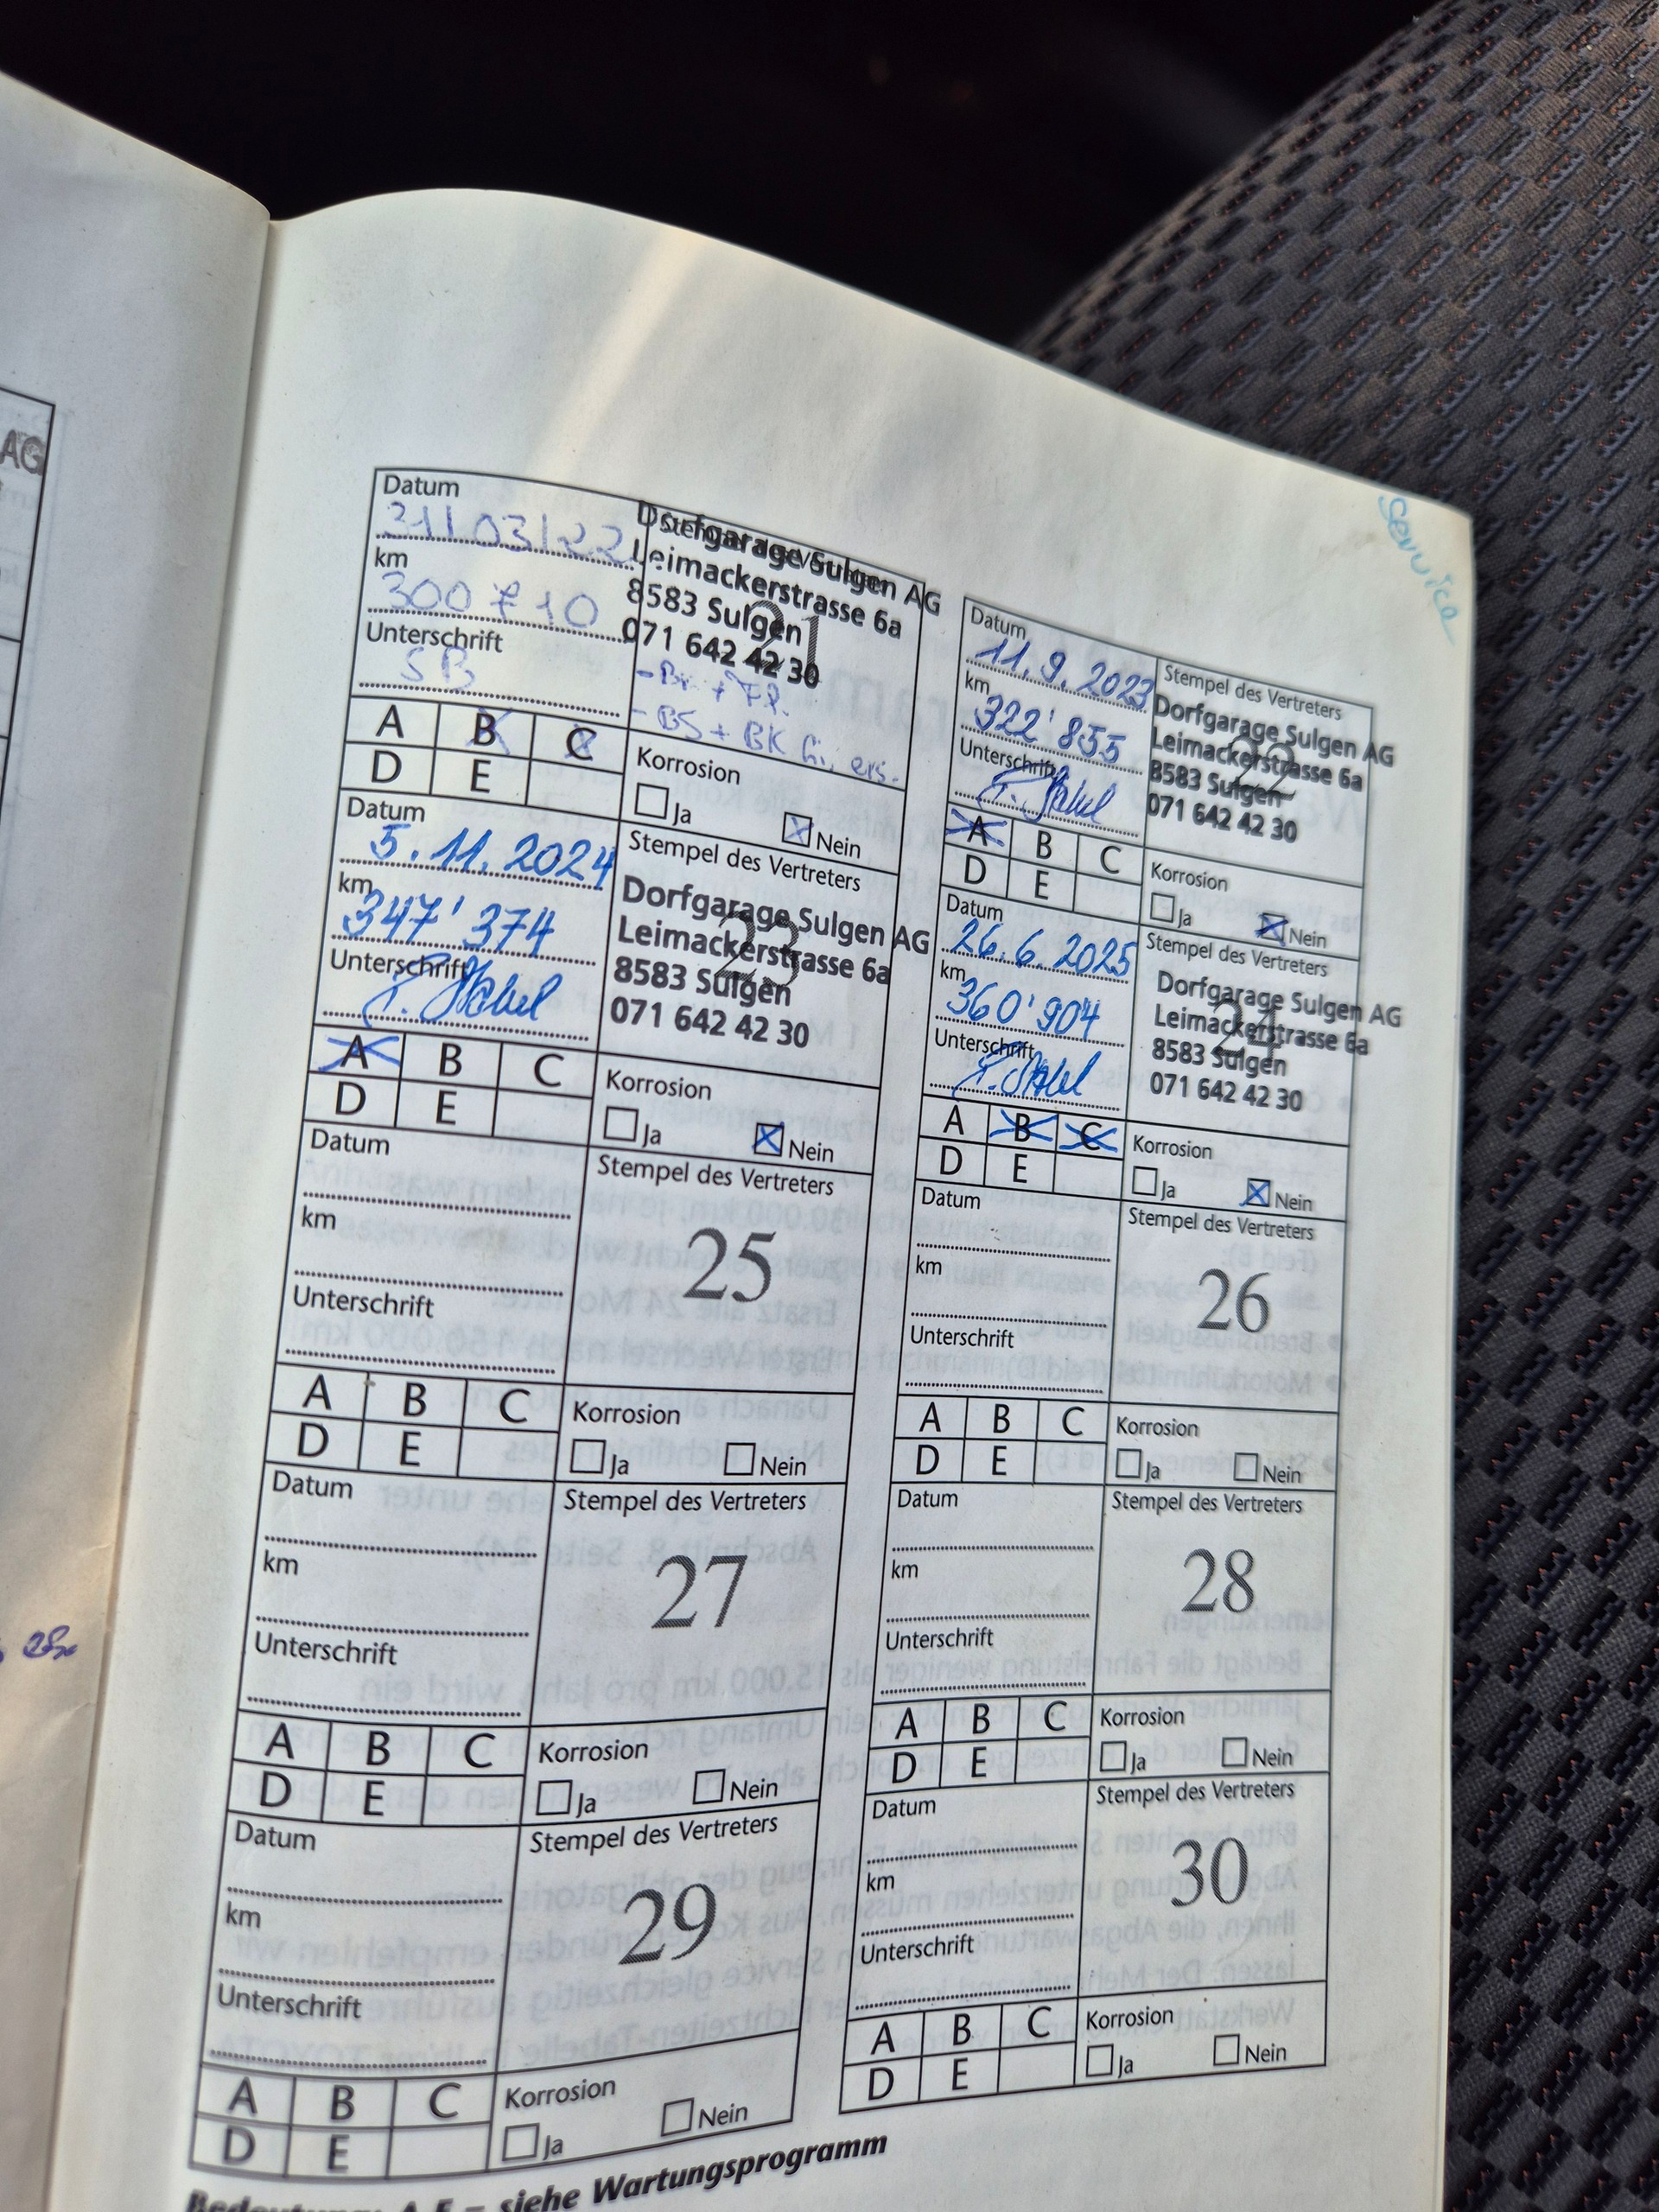 AG
Service
Datum
31/03/22
Dorfgarage Sulgen AG
km
Leimackerstrasse 6a
300710
8583 Sulgen
21
Unterschrift
071 642 42 30
SB
- Br. + Fl.
- BS + BK hi. ers.
A B C
D E
Korrosion
Ja Nein
Datum
11.9.2023
Stempel des Vertreters
km
Dorfgarage Sulgen AG
322'855
Leimackerstrasse 6a
22
Unterschrift
8583 Sulgen
071 642 42 30
A B C
D E
Korrosion
Ja Nein
Datum
5.11.2024
Stempel des Vertreters
km
Dorfgarage Sulgen AG
347'374
Leimackerstrasse 6a
23
Unterschrift
8583 Sulgen
071 642 42 30
A B C
D E
Korrosion
Ja Nein
Datum
26.6.2025
Stempel des Vertreters
km
Dorfgarage Sulgen AG
360'904
Leimackerstrasse 6a
24
Unterschrift
8583 Sulgen
071 642 42 30
A B C
D E
Korrosion
Ja Nein
Datum
Stempel des Vertreters
km
25
Unterschrift
A B C
D E
Korrosion
Ja Nein
Datum
Stempel des Vertreters
km
26
Unterschrift
A B C
D E
Korrosion
Ja Nein
Datum
Stempel des Vertreters
km
27
Unterschrift
A B C
D E
Korrosion
Ja Nein
Datum
Stempel des Vertreters
km
28
Unterschrift
A B C
D E
Korrosion
Ja Nein
Datum
Stempel des Vertreters
km
29
Unterschrift
A B C
D E
Korrosion
Ja Nein
Datum
Stempel des Vertreters
km
30
Unterschrift
A B C
D E
Korrosion
Ja Nein
Bedeutung: A-E = siehe Wartungsprogramm